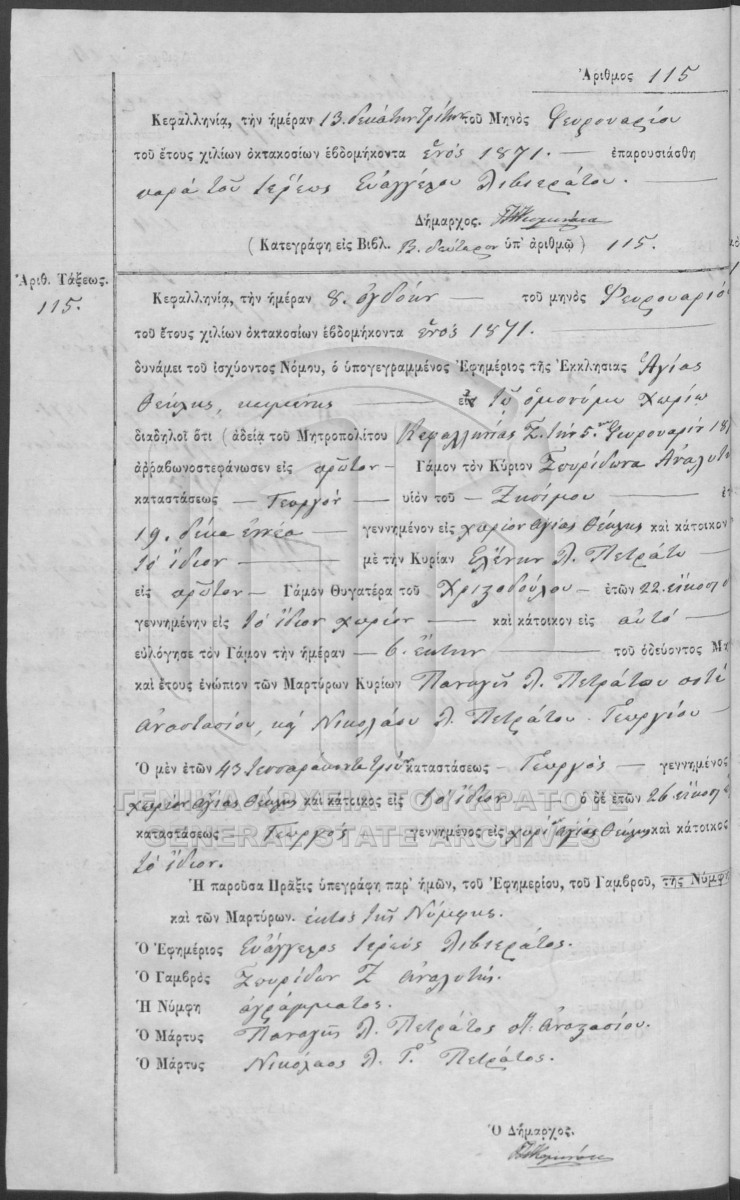 Ἀριθμος 115
Κεφαλληνία, τὴν ἡμέραν 13. δεκάτην τρίτην τοῦ Μηνὸς Φευρουαρίου
τοῦ ἔτους χιλίων ὀκτακοσίων ἑβδομήκοντα ἑνός 1871. — ἐπαρουσιάσθη
παρὰ τοῦ Ιερέως Εὐαγγέλου Λιβιεράτου. —
Δήμαρχος.
( Κατεγράφη εἰς Βιβλ. Β. δεύτερον ὑπ' ἀριθμῷ ) 115.
Ἀριθ. Τάξεως.
115.
Κεφαλληνία, τὴν ἡμέραν 8. ὀγδόην — τοῦ μηνὸς Φευρουαρίο
τοῦ ἔτους χιλίων ὀκτακοσίων ἑβδομήκοντα ἑνός 1871. —
δυνάμει τοῦ ἰσχύοντος Νόμου, ὁ ὑπογεγραμμένος Ἐφημέριος τῆς Ἐκκλησιας Ἁγίας
Θέκλης, κειμένης — εἰς τῷ ὁμονύμῳ Χωρίῳ
διαδηλοῖ ὅτι ( ἀδείᾳ τοῦ Μητροπολίτου Κεφαλληνίας Σ. τήν 5ην Φευρουαρίου 18
ἀῤῥαβωνοστεφάνωσεν εἰς πρῶτον — Γάμον τὸν Κύριον Σπυρίδωνα Ἀναλυτὴ
καταστάσεως — Γεωργόν — υἱὸν τοῦ — Ζησίμου — ἐτ
19. δέκα ἐννέα — γεννημένον εἰς χωρίον Ἁγίας Θέκλης καὶ κάτοικον
τό ἴδιον — μὲ τὴν Κυρίαν Ελένην Λ. Πετράτου —
εἰς πρῶτον — Γάμον Θυγατέρα τοῦ Χριστοδούλου — ἐτῶν 22. εἴκοσι δ
γεννημένην εἰς τό ἴδιον χωρίον — καὶ κάτοικον εἰς αὐτό —
εὐλόγησε τὸν Γάμον τὴν ἡμέραν — 6. ἕκτην — τοῦ ὁδεύοντος Μη
καὶ ἔτους ἐνώπιον τῶν Μαρτύρων Κυρίων Παναγῆ Λ. Πετράτου ποτέ
Ἀναστασίου, καί Νικολάου Λ. Πετράτου Γεωργίου —
Ὁ μὲν ἐτῶν 43 τεσσαράκοντα τριῶν καταστάσεως — Γεωργός — γεννημένος
χωρίον Ἁγίας Θέκλης καὶ κάτοικος εἰς τό ἴδιον ὁ δὲ ἐτῶν 26 εἴκοσι ἕ
καταστάσεως Γεωργός γεννημένος εἰς χωρίον Ἁγίας Θέκλης καὶ κάτοικος
τό ἴδιον.
ΓΕΝΙΚΑ ΑΡΧΕΙΑ ΤΟΥ ΚΡΑΤΟΥΣ
GENERAL STATE ARCHIVES
Ἡ παροῦσα Πρᾶξις ὑπεγράφη παρ' ἡμῶν, τοῦ Ἐφημερίου, τοῦ Γαμβροῦ, τῆς Νύμφη
καὶ τῶν Μαρτύρων. ἐκτός τῆς Νύμφης.
Ὁ Ἐφημέριος Εὐάγγελος Ιερεύς Λιβιεράτος.
Ὁ Γαμβρὸς Σπυρίδων Ζ Αναλυτής.
Ἡ Νύμφη ἀγράμματος.
Ὁ Μάρτυς Παναγῆς Λ. Πετράτος π. Ἀναστασίου.
Ὁ Μάρτυς Νικόλαος Λ. Γ. Πετράτος.
Ὁ Δήμαρχος.